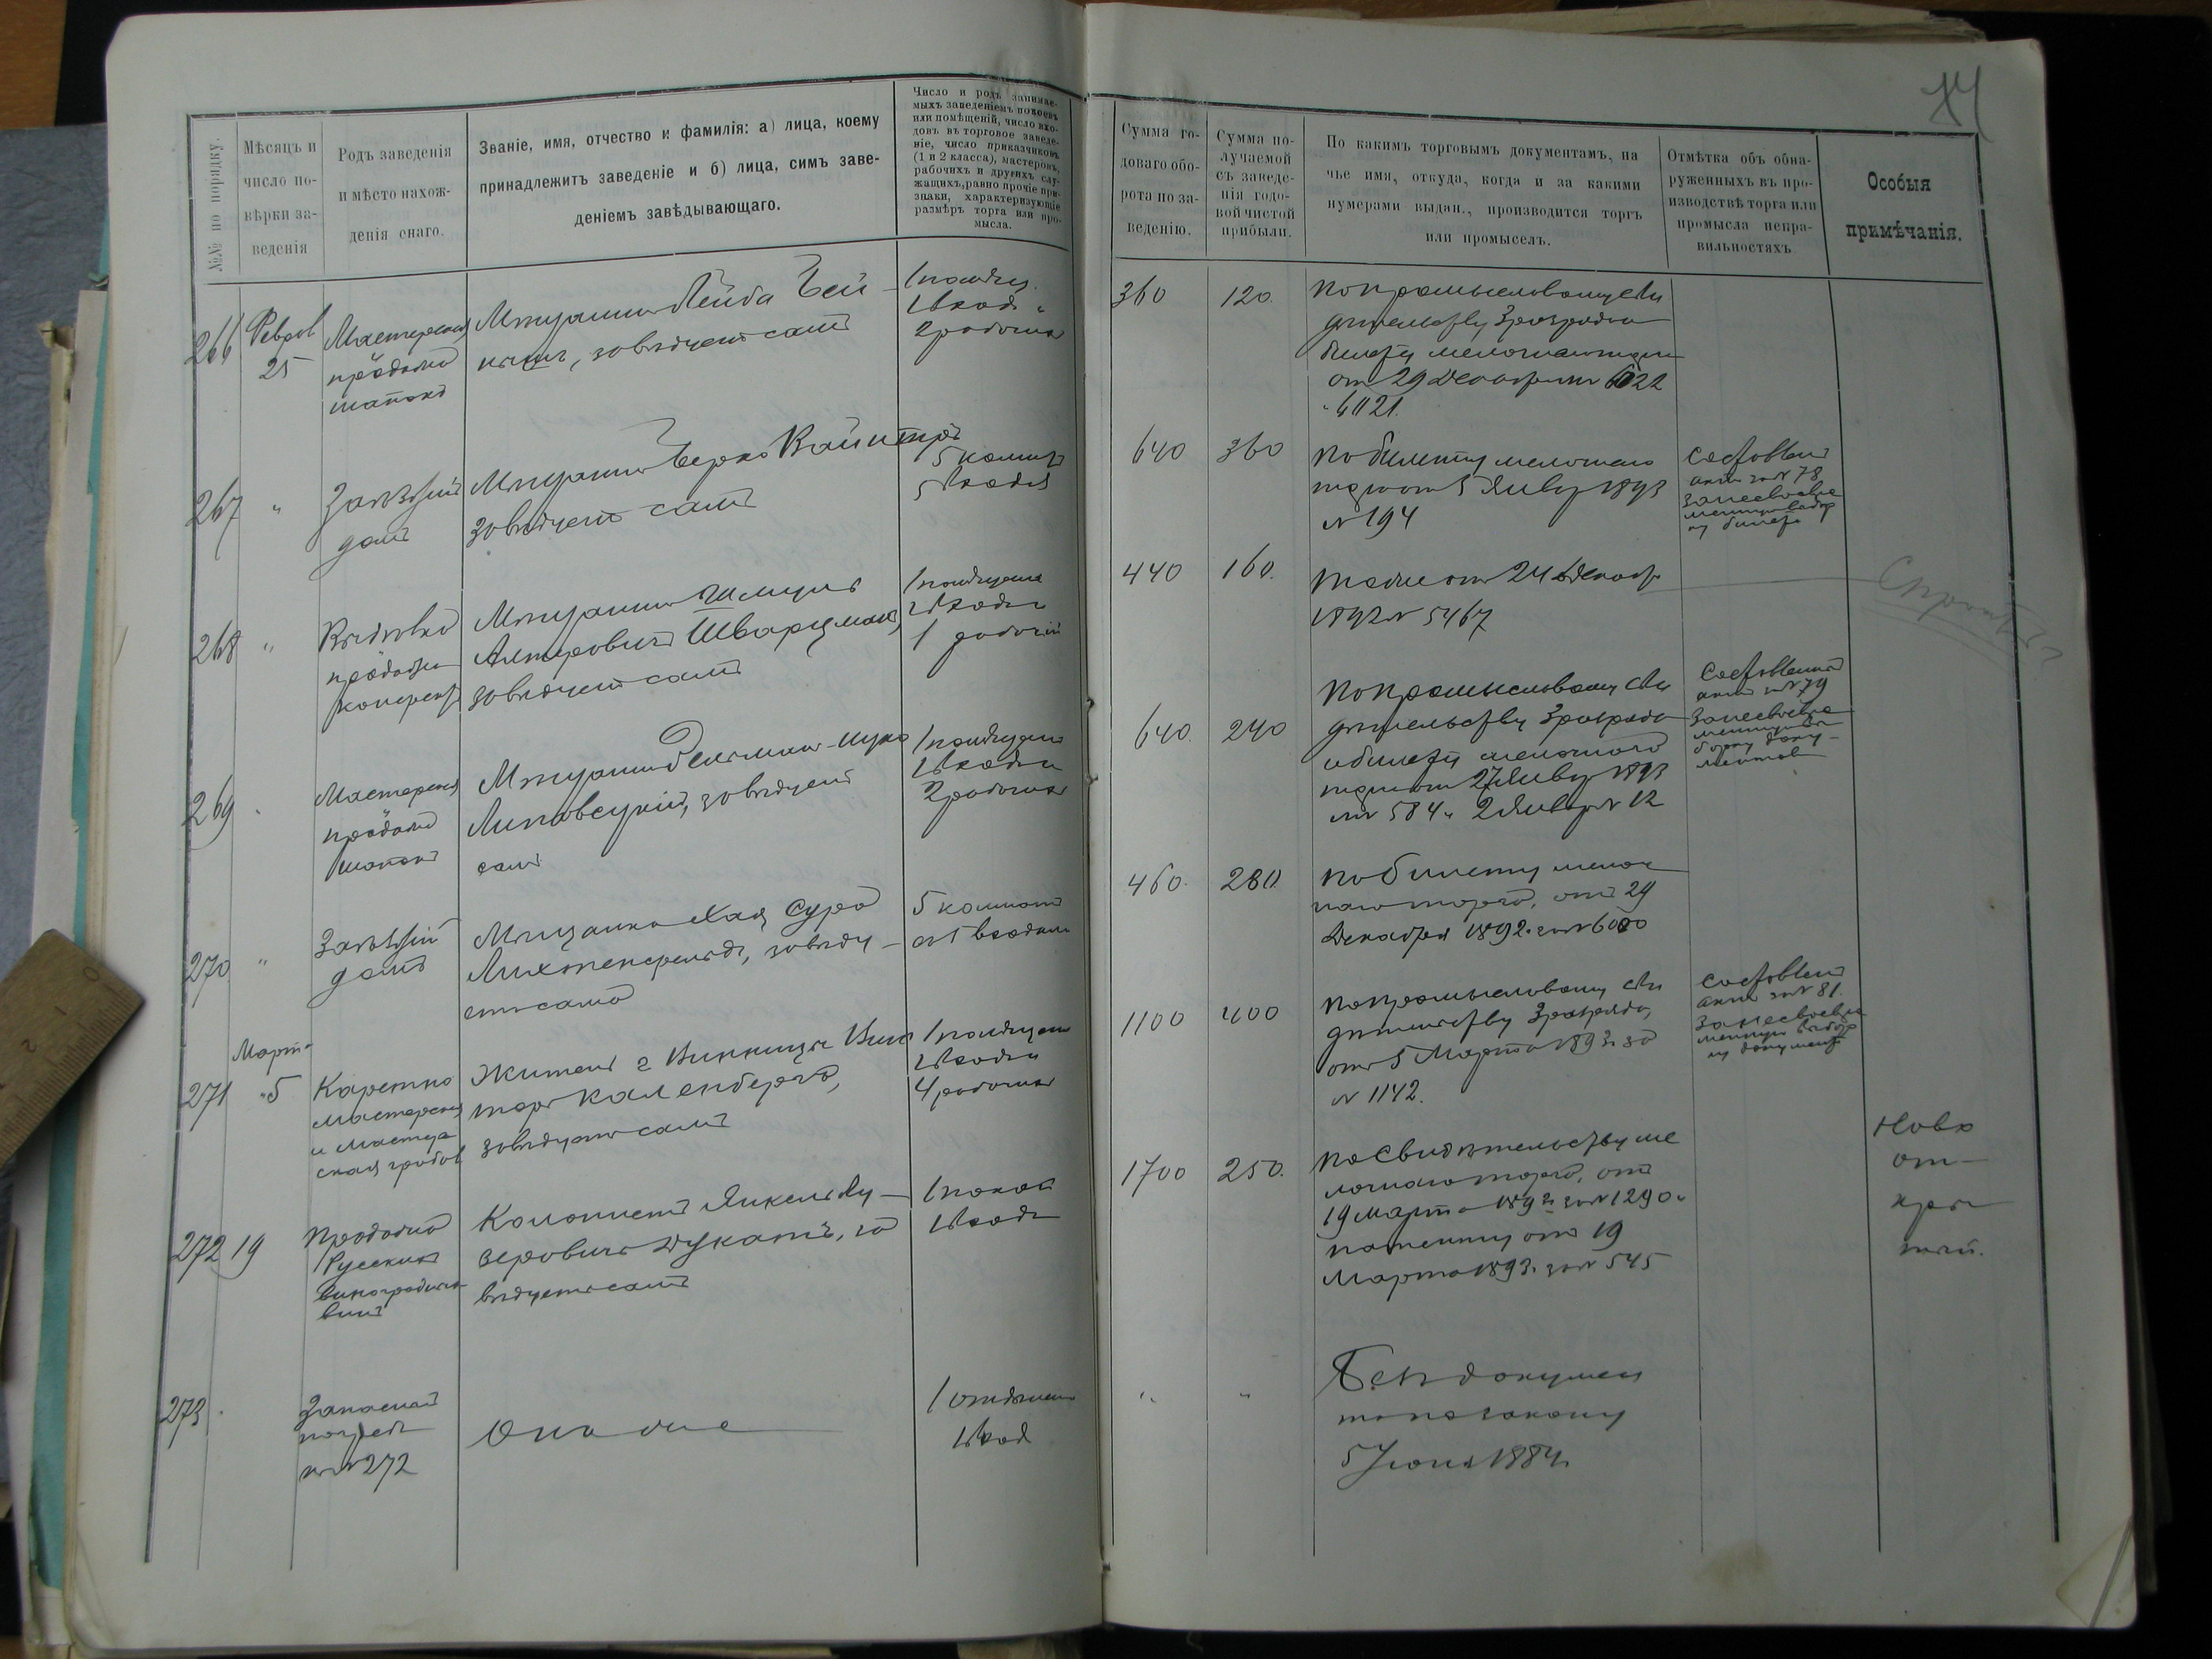 №№ по порядку.
Мѣсяцъ и
число по-
вѣрки за-
веденія
Родъ заведенія
и мѣсто нахож-
денія онаго.
Званіе, имя, отчество и фамилія: а) лица, коему
принадлежитъ заведеніе и б) лица, симъ заве-
деніемъ завѣдывающаго.
Число и родъ занимае-
мыхъ заведеніемъ покоевъ
или помѣщеній, число вхо-
довъ въ торговое заведе-
ніе, число приказчиковъ
(1 и 2 класса), мастеровъ,
рабочихъ и другихъ слу-
жащихъ, равно прочіе при-
знаки, характеризующіе
размѣръ торга или про-
мысла.
Сумма го-
доваго обо-
рота по за-
веденію.
Сумма по-
лучаемой
съ заведе-
нія годо-
вой чистой
прибыли.
По какимъ торговымъ документамъ, на
чье имя, откуда, когда и за какими
нумерами выдан., производится торгъ
или промыселъ.
Отмѣтка объ обна-
руженныхъ въ про-
изводствѣ торга или
промысла непра-
вильностяхъ
Особыя
примѣчанія.
266
Феврал
25
Мастерская
продажа
шапокъ
Мѣщанинъ Лейба
завѣдуетъ самъ
1 помѣщ.
1 входъ
2 рабочих
360
120.
по промысловому сви
дѣтельству 3 разряда
билету мелочнаго торга
от 29 Декабря № 6022
6021.
267
"
Заѣзжій
домъ
Мѣщанинъ Берко Вайнтро
завѣдуетъ самъ
5 комнатъ
входа
640
360
по билету мелочнаго
торга от 5 Янвр 1893
№ 194
Составленъ
актъ за № 78
за несвоевре
менную выбор
ку билета
268
"
Мѣщанинъ Шмуль
Алтеровичъ Шварцманъ,
завѣдуетъ самъ
1 помѣщение
входъ
1 рабочій
440
160.
тоже от 24 Декабр
1892 № 5467
269
Мастерская
продажа
шапокъ
Мѣщанинъ
Липовецкій, завѣдуетъ
самъ
1 помѣщение
1 входъ
2 рабочих
640.
240
По промысловому сви
дѣтельству 3 разряда
и билету мелочнаго
торга от 27 Янвр 1893
за № 584 и 2 Января № 12
Составленъ
актъ за № 79
за несвоевре
менную вы
борку доку-
ментовъ
270
"
Заѣзжій
домъ
Мѣщанка Хая Сура
Лихтенфельдъ, завѣду-
етъ сама
5 комнатъ
съ 1 входомъ
460.
280.
По билету мелоч
наго торга, отъ 29
Декабря 1892 за № 6000
Марта
271
5
Каретно
мастерская
и мастер
ская гробов
Житель г Винницы Вик
торъ Каленбергъ,
завѣдуетъ самъ
1 помѣщение
1 входъ
4 рабочих
1100
400
По промысловому сви
дѣтельству 3 разряда,
от 5 Марта 1893 за
№ 1142.
Составленъ
актъ за № 81.
За несвоевре
менную выбор
ку документ
272
19
продажа
Русских
виноградных
винъ
Колонистъ Янкель Лу-
зеровичъ Дукатъ, за
вѣдуетъ самъ
1 покой
1 входъ
1700
250.
по Свидѣтельству ме
лочнаго торга, отъ
19 Марта 1893 за № 1290 и
патенту отъ 19
Марта 1893 за № 545
Ново
от-
кры
тый.
273
Запасный
погребъ
къ № 272
Она же
1 отдѣлен
1 вход
"
"
Безъ докумен
та по закону
5 Іюня 1884